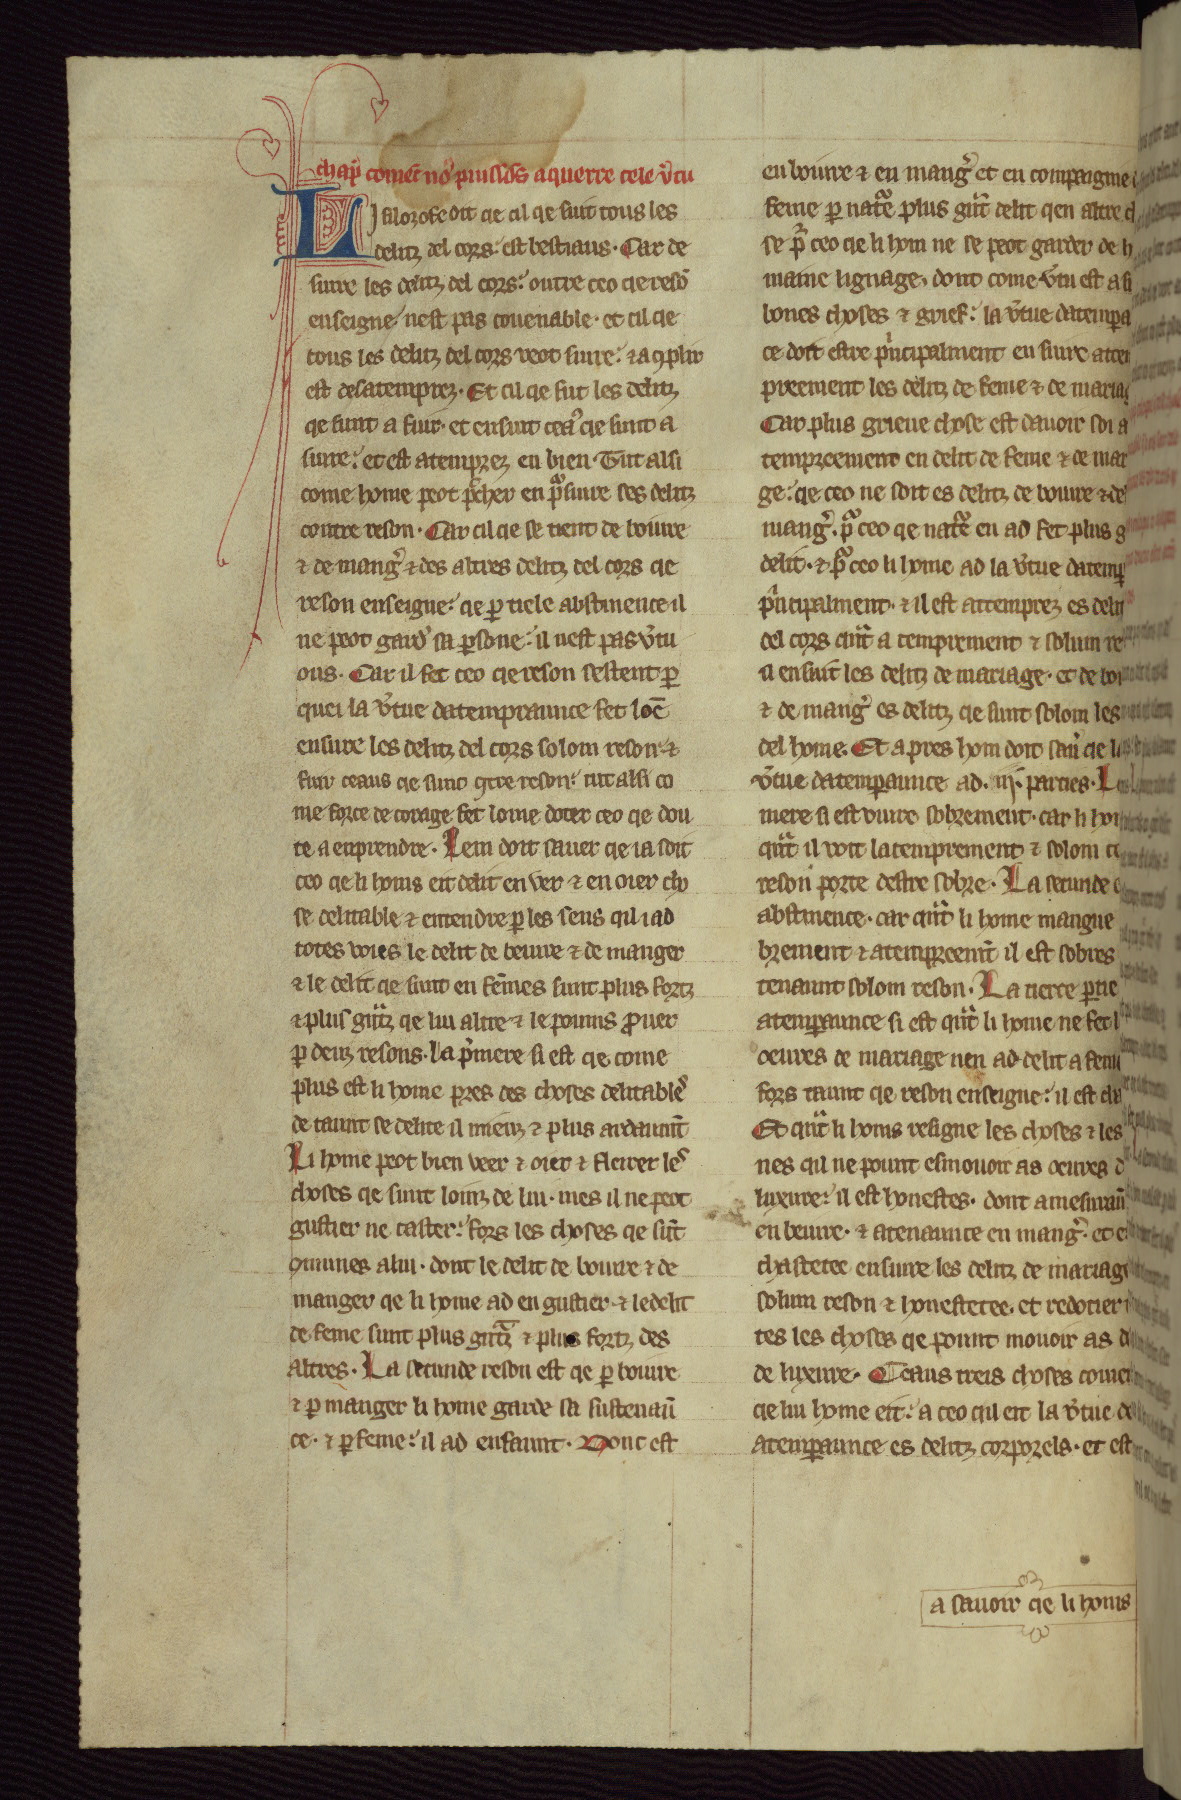 chap̃ comẽt no᷒ puissõs aquerre cele v̉tu
LI filozofe dit qe cil qe suit tous les
delitz del cors: est bestiaus. Car de
suire les delitz del cors: outre ceo qe resõ
enseigne nest pas couenable. et cil qe
tous les delitz del cors veot suire: ⁊ acꝑlir
est desatemprez. Et cil qe fut les delitz
qe sunt a fuir. et ensuit ceã qe sunt a
suire: et est atemprez en bien. Tut alsi
come home peot pecher en p̃ suire ses delitz
contre reson. Car cil qe se tient de boiure
⁊ de mang̉ ⁊ des altres delitz del cors qe
reson enseigne: qe ꝑ tiele abstinence il
ne peot gard̉ sa ꝑsone: il nest pas v̉tu
ous. Car il fet ceo qe reson sestent ꝑ
quei la v̉tue datempraunce fet lõe
ensure les delitz del cors solom reson ⁊
fuir ceaus qe sunt ꝯtre reson: tut alsi co
me force de corage fet lome doter ceo qe dou
te a enprendre. Lem doit sauer qe ia soit
ceo qe li homs eit delit en ver ⁊ en oier cho
se delitable ⁊ entendre ꝑ les sens qil i ad
totes voies le delit de beuure ⁊ de manger
⁊ le delit qe sunt en fẽmes sunt plus fortz
⁊ plus gñtz qe lui altre ⁊ le pouns ꝓuer
ꝑ deuz resons. La p̉mere si est qe come
plus est li home pres des choses delitable᷒
de taunt se delite il mieuz ⁊ plus ardaumt̃
Li home peot bien veer ⁊ oier ⁊ fleirer le᷒
choses qe sunt loinz de lui. mes il ne peot
gustier ne taster: fors les choses qe sũt
ꝯmunes a lui. dont le delit de boiure ⁊ de
manger qe li home ad en gustier ⁊ le delit
de feme sunt plus gñtz ⁊ plus fortz des
altres. La secunde reson est qe ꝑ boiure
⁊ ꝑ manger li home garde sa sustenaũ
ce. ⁊ ꝑ feme: il ad enfaunt. Dont est
en boiure ⁊ en mang̉ et en compaignie
feme ꝑ nat̃e plus gñt delit qen altre
se p̃ ceo qe li hom ne se peot garder de
maine lignage. dont come v̉tu est
bones choses ⁊ grief: la v̉tue datempa
ce doit estre p̉ncipalment en suire
preement les delitz de feme ⁊ de
Car plus grieue chose est dauoir soi
tempreement en delit de feme ⁊ de mar
ge: qe ceo ne soit es delitz de boiure ⁊ de
mang̉. p̃ ceo qe nat̃e en ad fet plus
delit. ⁊ p̃ ceo li home ad la v̉tue datemp
p̉ncipalment. ⁊ il est attemprez es
del cors qñt a temprement ⁊ solum
il ensuit les delitz de mariage. et de
⁊ de mang̉ es delitz qe sunt solom les
del home. Et apres hom doit saủ qe
v̉tue datemꝑaunce ad .iiij. parties.
mere si est viure sobrement. car li
qñt il vit latemprement ⁊ solom
reson porte destre sobre. La secunde
abstinence. car qñt li home mangue
brement ⁊ atempreemt̃ il est sobres
tenaunt solom reson. La tierce ꝑtie
atemꝑaunce si est qñt li home ne fet
oeures de mariage nen ad delit a
fors taunt qe reson enseigne: il est
Et qñt li homs resigne les choses ⁊ les
nes qil ne pount esmouoir as oeures
luxure: il est honestes. dont amesuraũ
en beuure. ⁊ atenaunce en mang̉. et
chastetee ensuire les delitz de mariag
solum reson ⁊ honestetee. et redotier
tes les choses qe pount mouoir as
de luxure. Ceaus treis choses
qe lui home eit: a ceo qil eit la v̉tue
atemꝑaunce es delitz corporels. et est
a sauoir qe li homs